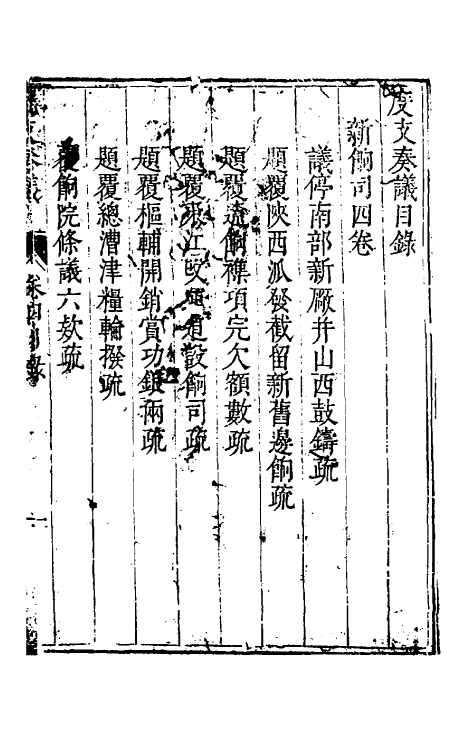 度支奏議目錄
新餉司四卷
議停南部新廠并山西鼓鑄疏
題覆陝西派發截留新舊邊餉疏
題覆遼餉襍項完欠額數疏
題覆東江改道設餉司疏
題覆樞輔開銷賞功銀兩疏
題覆總漕津糧輪撥疏
覆餉院條議六欵疏